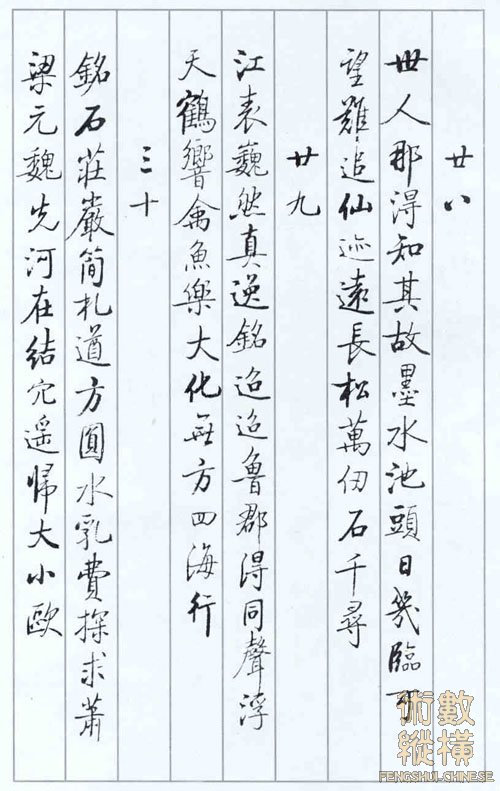 廿八
世人那得知其故墨水池頭日幾臨可
望難追仙迹遠長松萬仞石千尋
廿九
江表巍然真逸銘迢迢魯郡得同聲浮
天鶴響禽魚樂大化無方四海行
三十
銘石莊嚴簡札遒方圓水乳費探求蕭
梁元魏先河在結穴遥歸大小歐
術數
縱橫
FENGSHUI-CHINESE